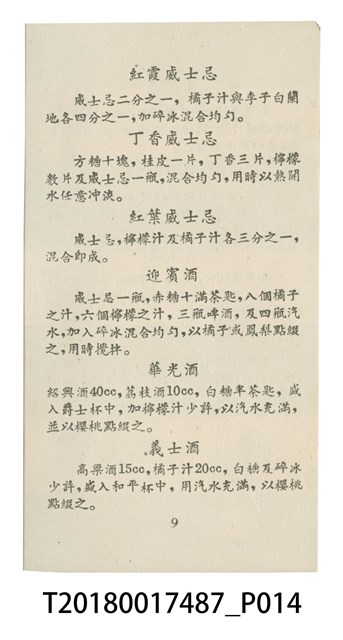 紅霞威士忌
威士忌二分之一，橘子汁與李子白蘭
地各四分之一，加碎冰混合均勻。
丁香威士忌
方糖十塊，桂皮一片，丁香三片，檸檬
數片及威士忌一瓶，混合均勻，用時以熱開
水任意冲淡。
紅葉威士忌
威士忌，檸檬汁及橘子汁各三分之一，
混合即成。
迎賓酒
威士忌一瓶，赤糖十滿茶匙，八個橘子
之汁，六個檸檬之汁，三瓶啤酒，及四瓶汽
水，加入碎冰混合均勻，以橘子或鳳梨點綴
之，用時攪拌。
華光酒
紹興酒40cc，荔枝酒10cc，白糖半茶匙，盛
入爵士杯中，加檸檬汁少許，以汽水充滿，
並以櫻桃點綴之。
義士酒
高梁酒15cc，橘子汁20cc，白糖及碎冰
少許，盛入和平杯中，用汽水充滿，以櫻桃
點綴之。
9
T20180017487_P014